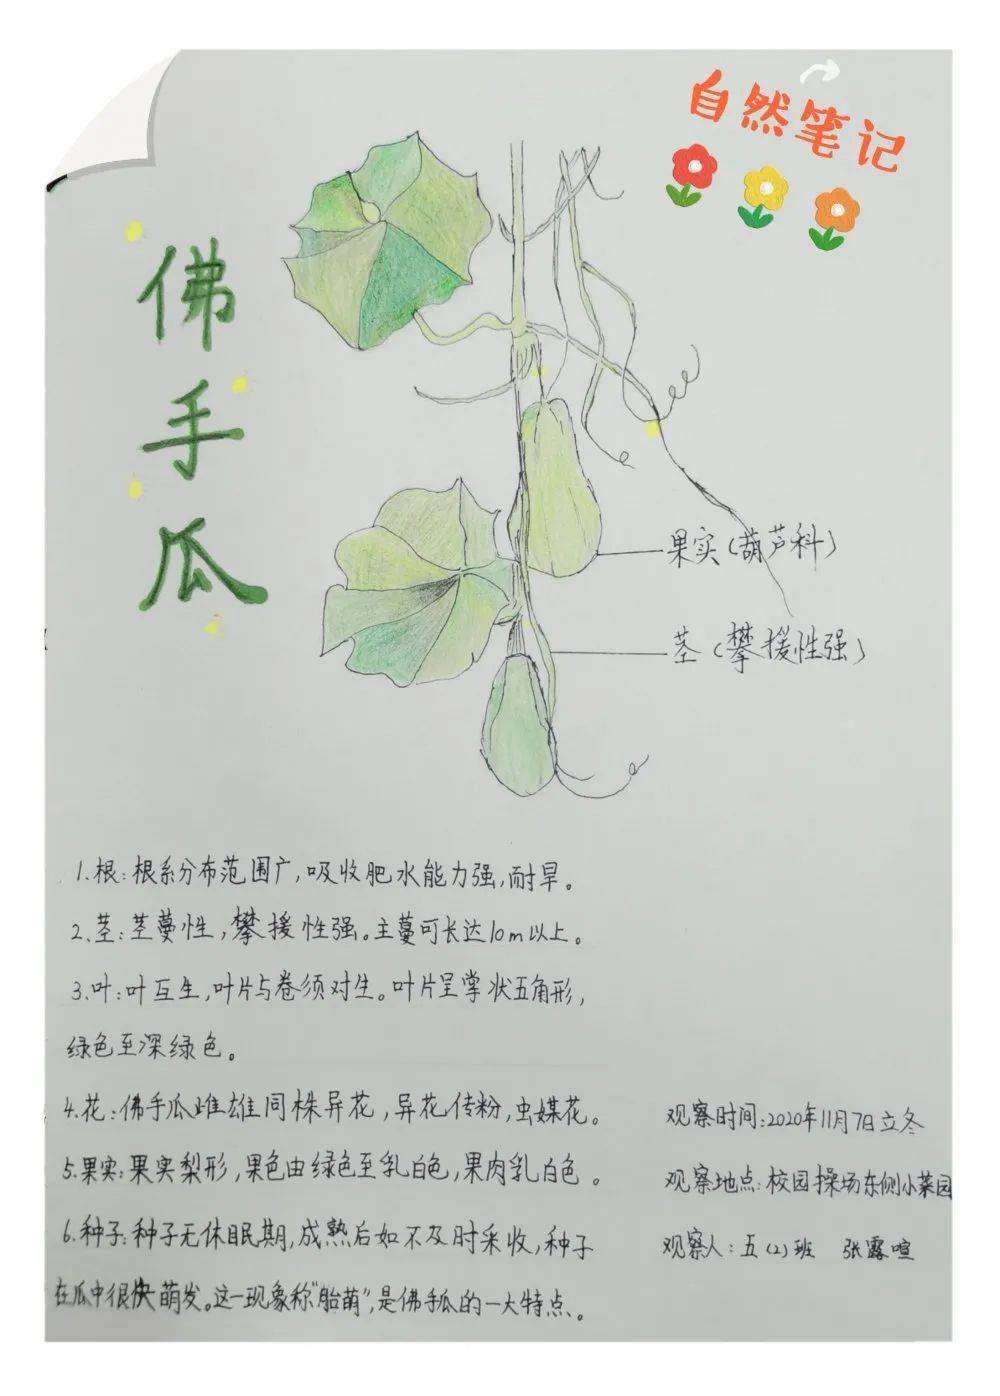 自然笔记
佛手瓜
果实(葫芦科)
茎(攀援性强)
1.根:根系分布范围广,吸收肥水能力强,耐旱。
2.茎:茎蔓性,攀援性强。主蔓可长达10m以上。
3.叶:叶互生,叶片与卷须对生。叶片呈掌状五角形,
绿色至深绿色。
4.花:佛手瓜雌雄同株异花,异花传粉,虫媒花。
5.果实:果实梨形,果色由绿色至乳白色,果肉乳白色。
6.种子:种子无休眠期,成熟后如不及时采收,种子
在瓜中很快萌发。这一现象称"胎萌",是佛手瓜的一大特点。
观察时间:2020年11月7日立冬
观察地点:校园操场东侧小菜园
观察人:五(2)班 张露喧